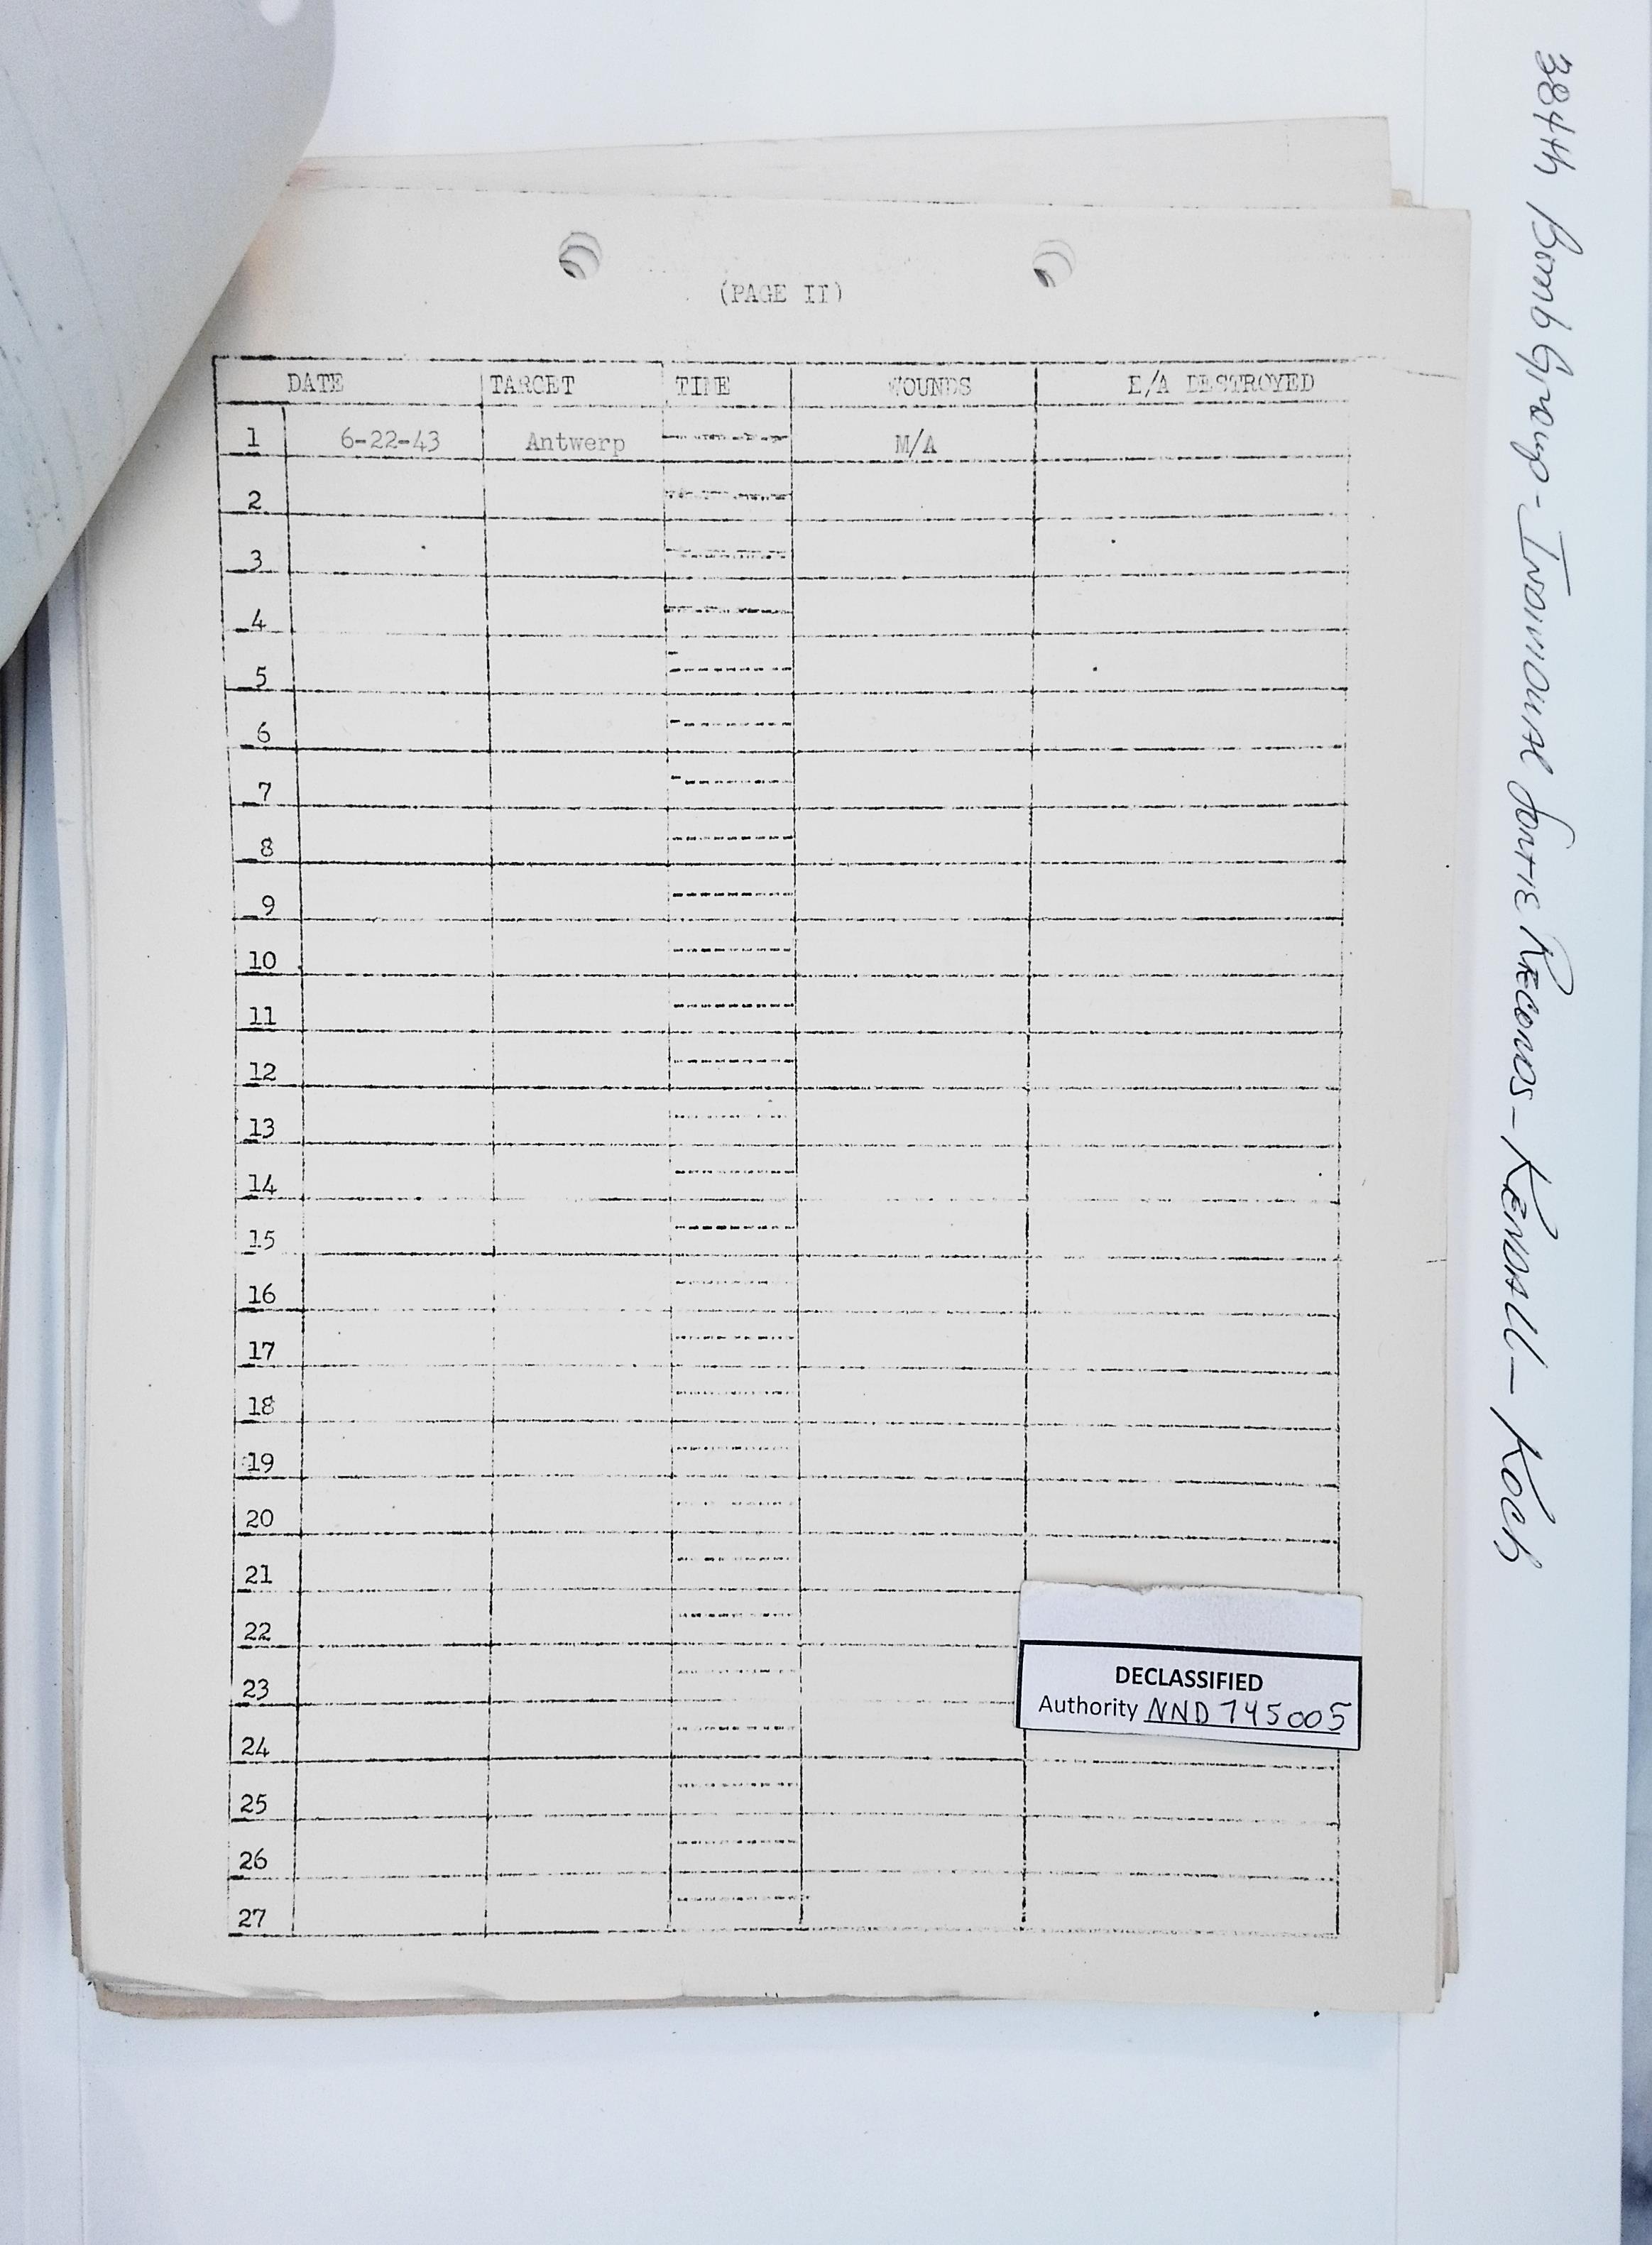 (PAGE II)
DATE TARGET TIME WOUNDS E/A DESTROYED
1 6-22-43 Antwerp M/A
2
3
4
5
6
7
8
9
10
11
12
13
14
15
16
17
18
19
20
21
22
23
24
25
26
27
DECLASSIFIED
Authority NND 745005
384th Bomb Group - Individual Sortie Records - Kendall - Koch